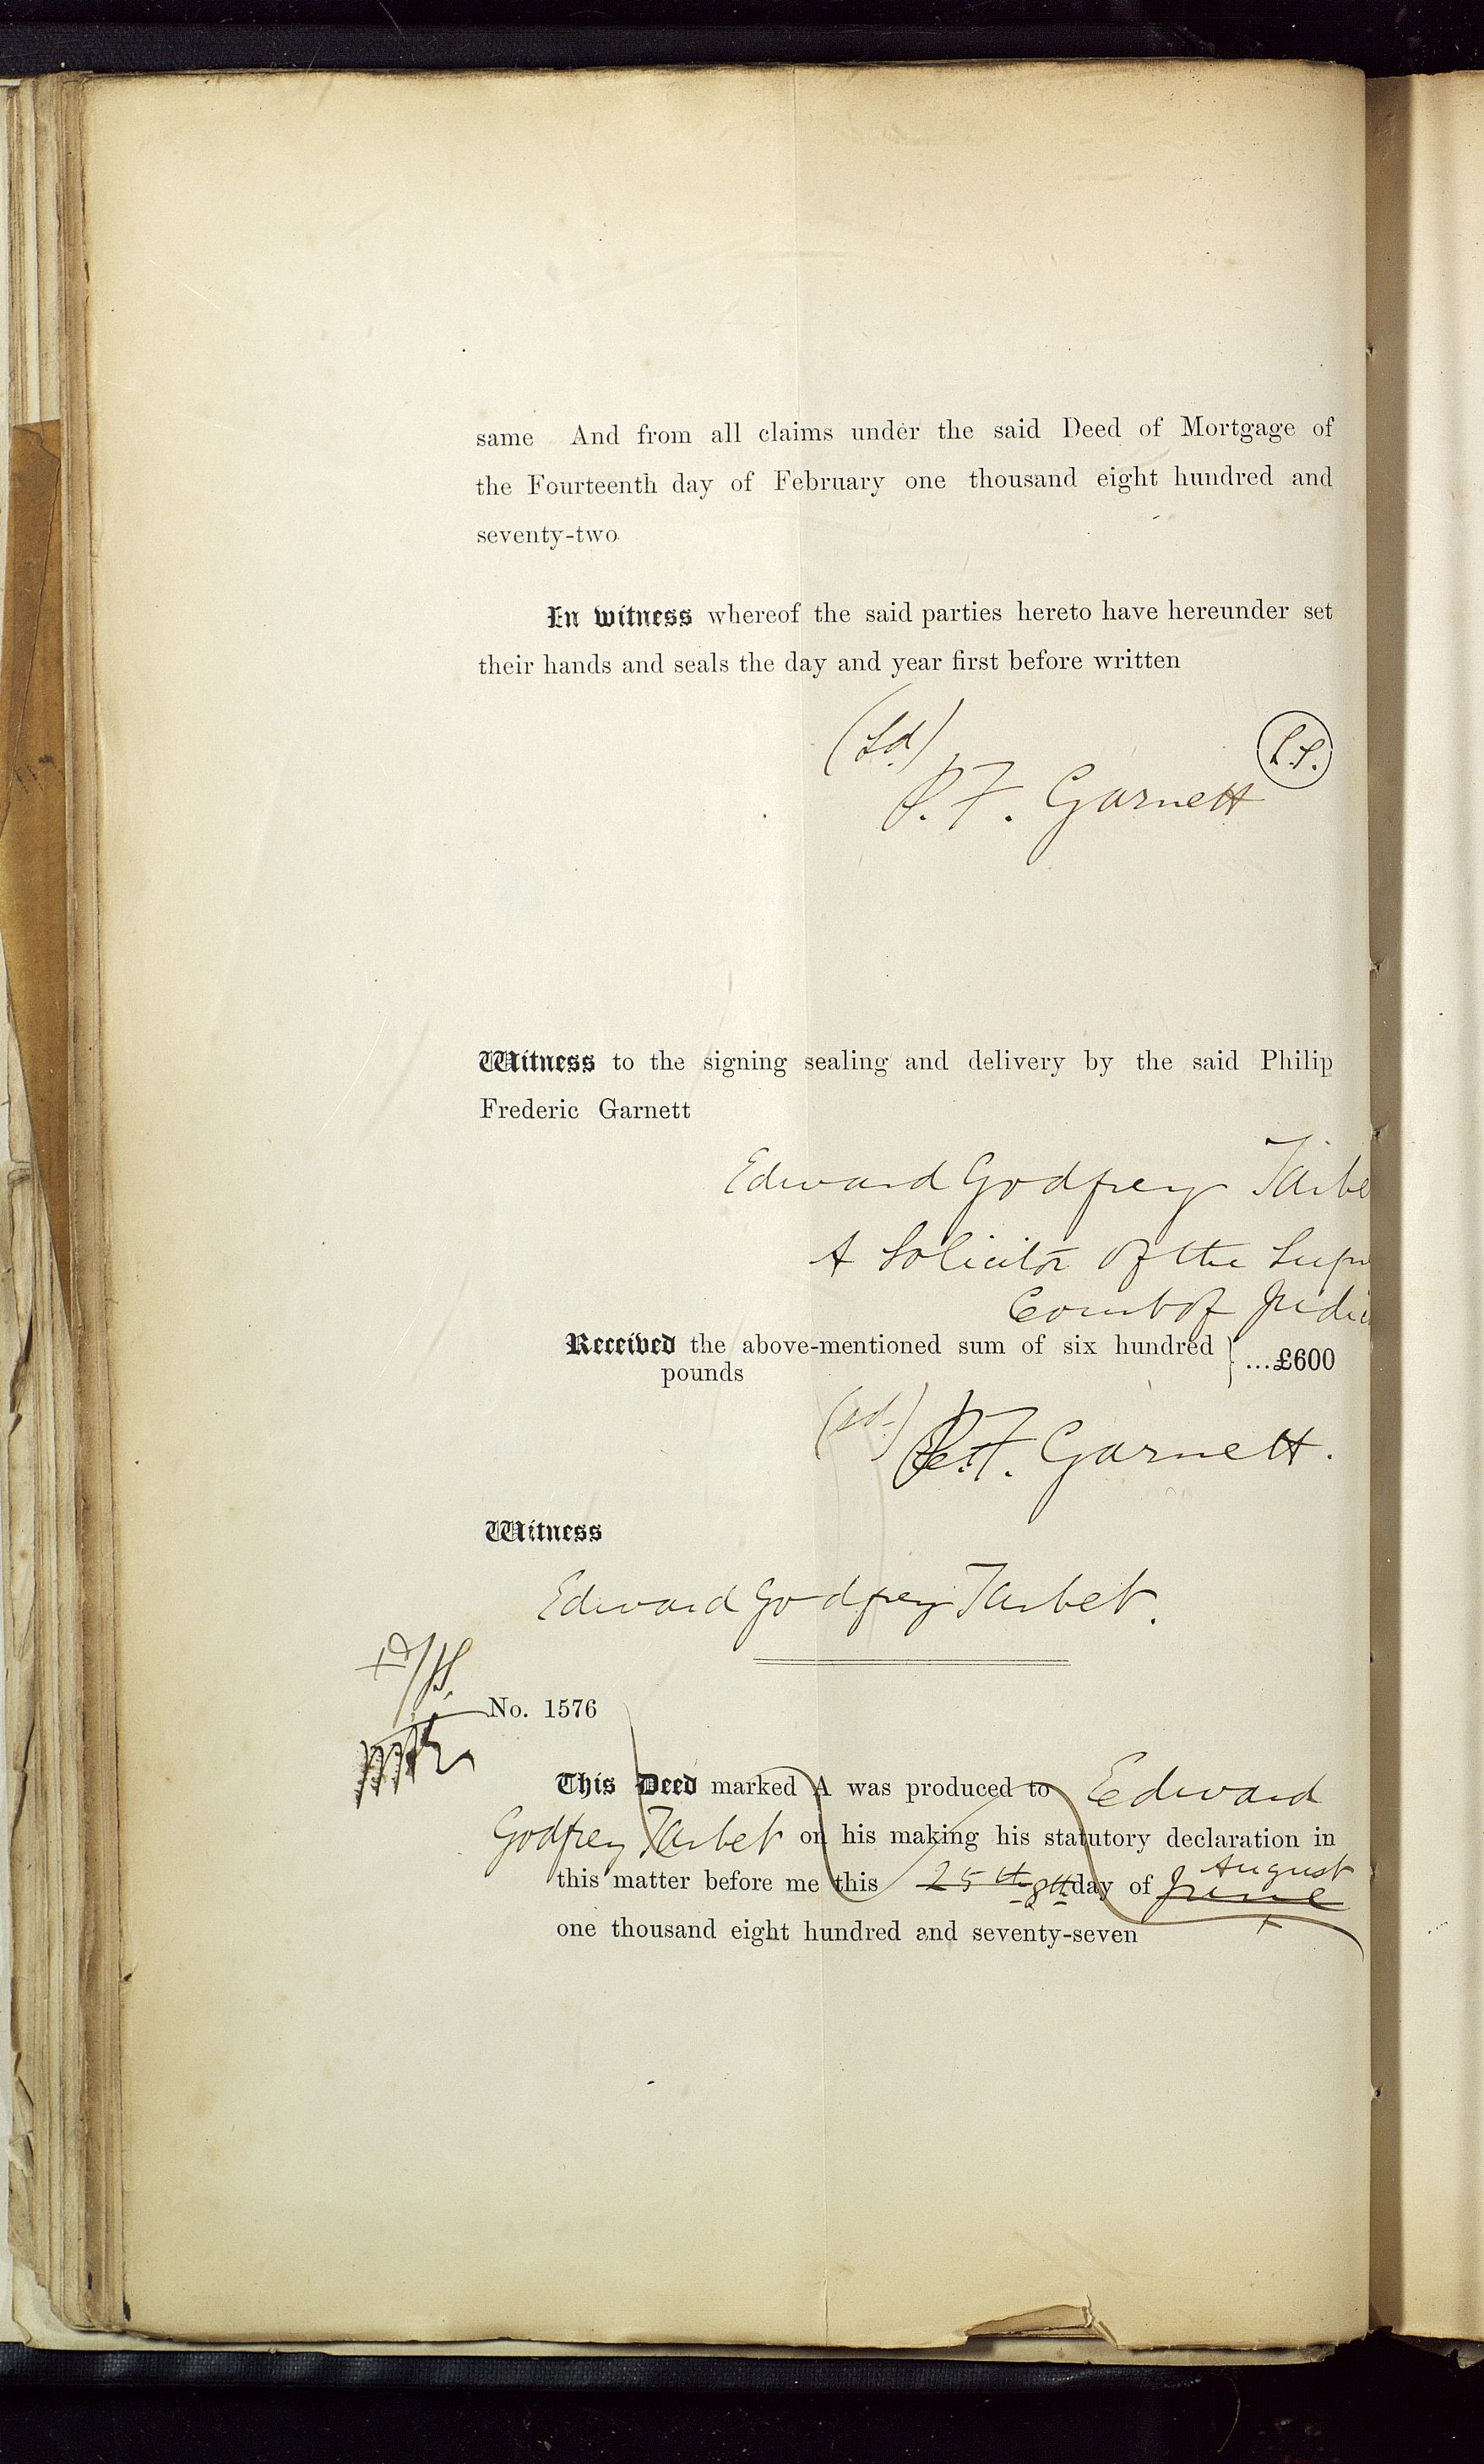 same And from all claims under the said Deed of Mortgage of
the Fourteenth day of February one thousand eight hundred and
seventy-two
In witness whereof the said parties hereto have hereunder set
their hands and seals the day and year first before written
(Sd)
L.S.
P. F. Garnett
Witness to the signing sealing and delivery by the said Philip
Frederic Garnett
Edward Godfrey Tarbe
A Solicitor of the Supr
Court of Judic
Received the above-mentioned sum of six hundred
pounds
...£600
(sd.) P.F. Garnett.
Witness
Edward Godfrey Tarbet.
No. 1576
This Deed marked A was produced to Edward
Godfrey Tarbet on his making his statutory declaration in
August
this matter before me this 25th 8th day of June
one thousand eight hundred and seventy-seven